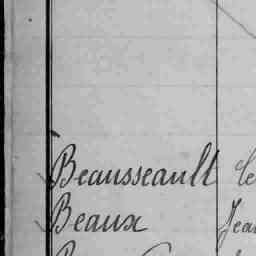 Beausseault le
Beaux Jean